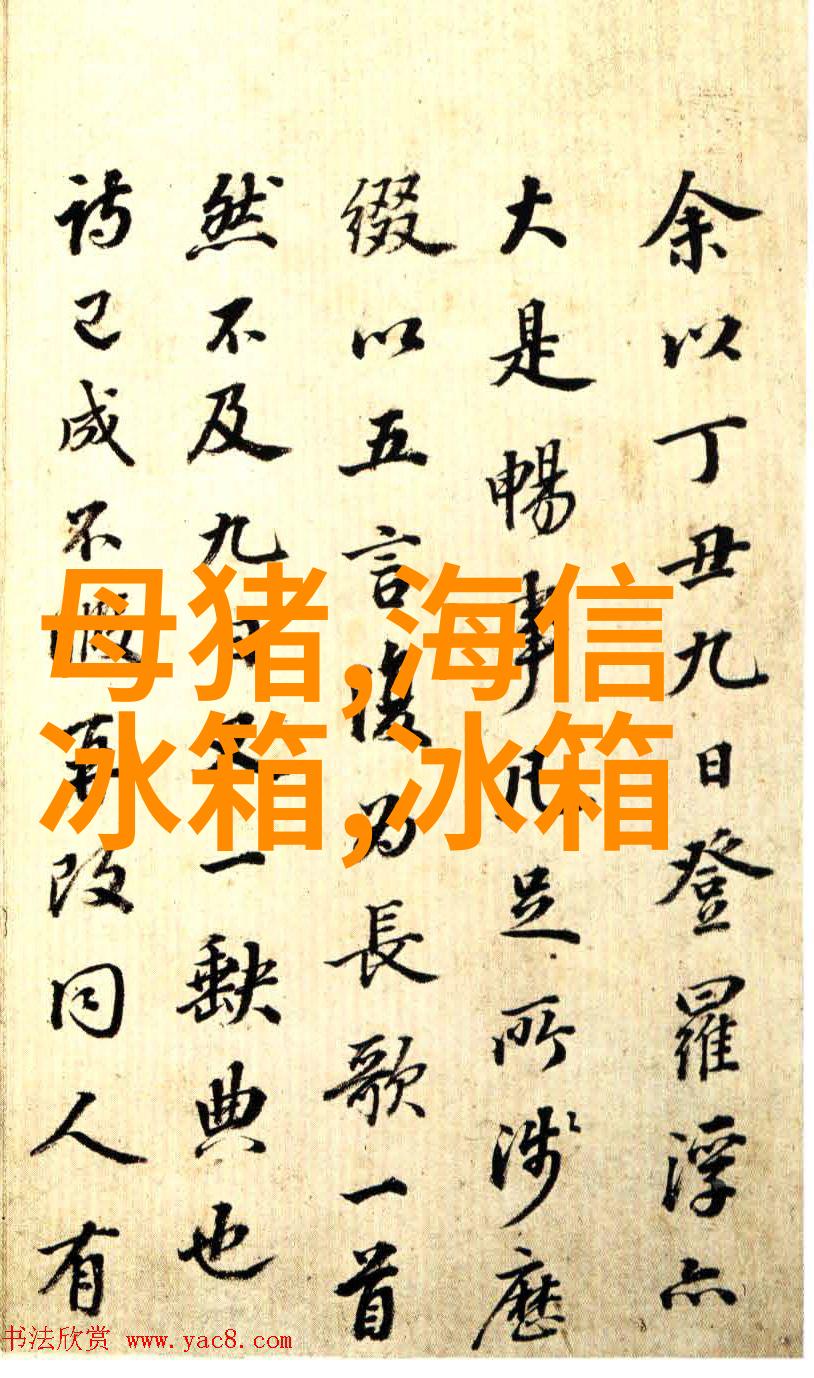 余以丁丑九日登羅浮亦
大是暢事凡足所涉歷
綴以五言復为長歌一首
然不及九日一缺典也
詩已成不暇再改同人有
母猪,海信
冰箱,冰箱
书法欣赏 www.yac8.com